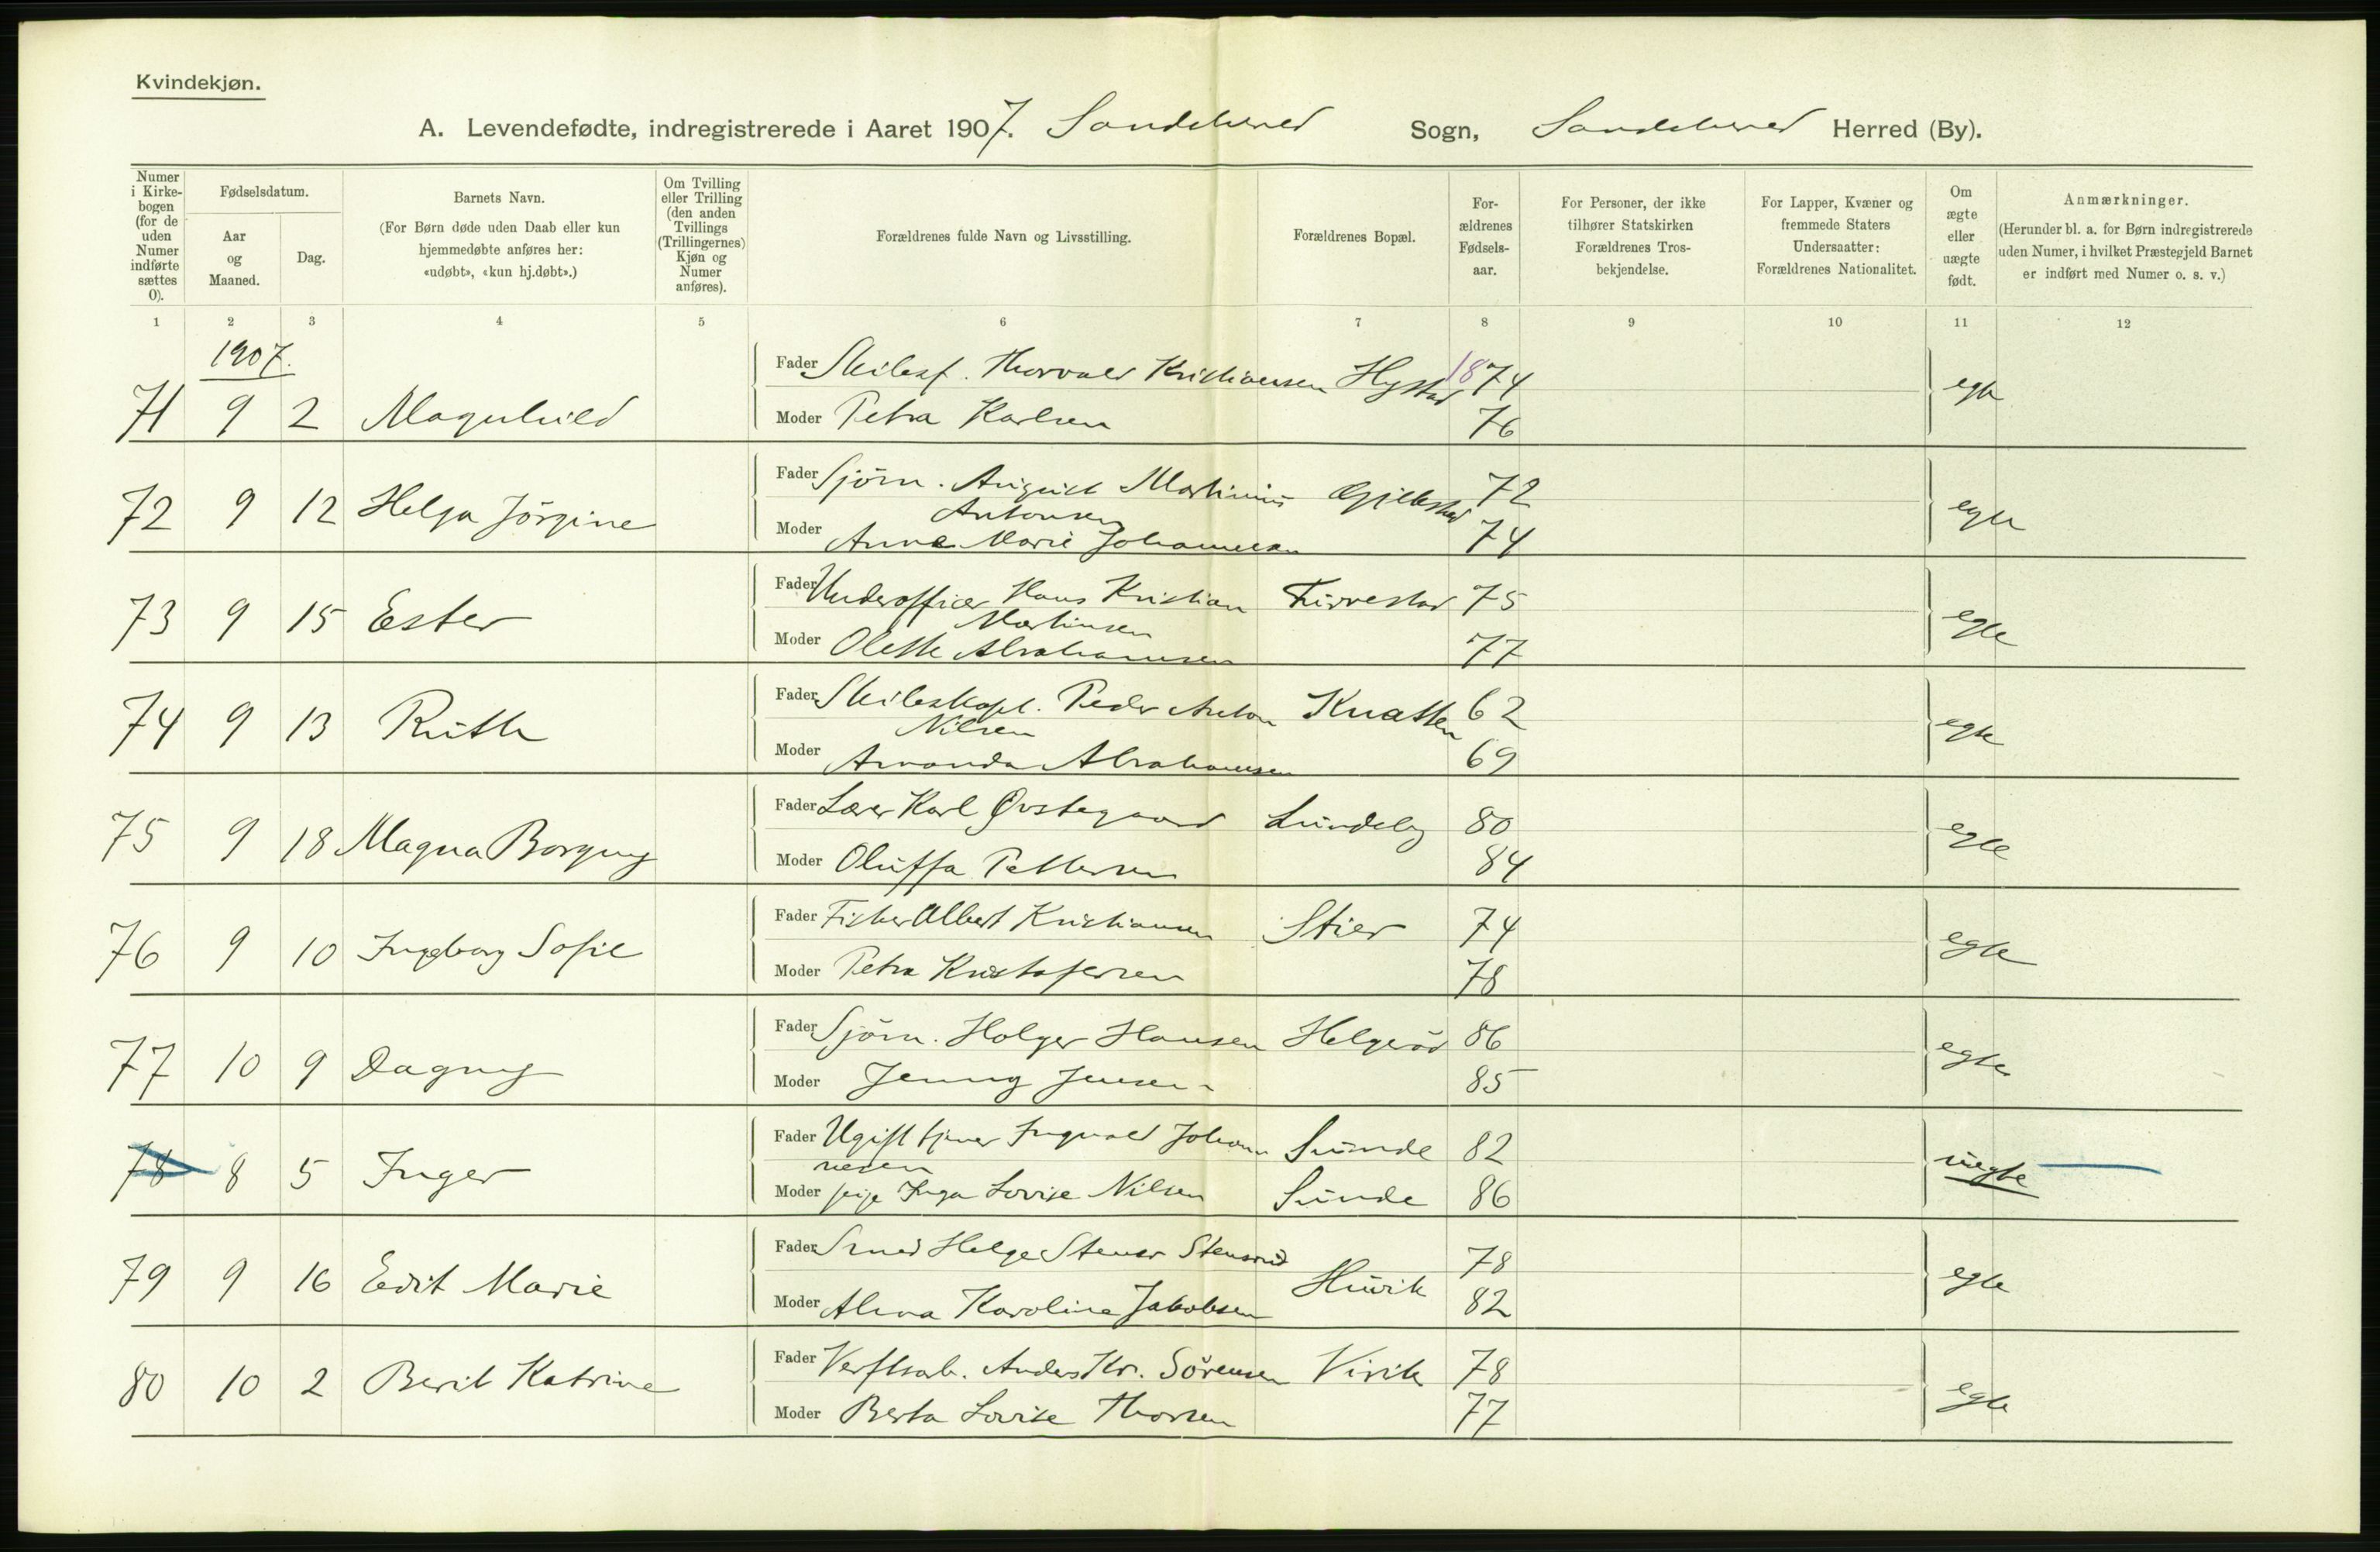 Kvindekjøn.
A. Levendefødte, indregistrerede i Aaret 1907. Sandeherred Sogn, Sandeherred Herred (By).
Numer i Kirkebogen (for de uden Numer indførte sættes 0).
Fødselsdatum.
Aar og Maaned.
Dag.
Barnets Navn.
(For Børn døde uden Daab eller kun hjemmedøbte anføres her: «udøbt», «kun hj.døbt».)
Om Tvilling eller Trilling (den anden Tvillings (Trillingernes) Kjøn og Numer anføres).
Forældrenes fulde Navn og Livsstilling.
Forældrenes Bopæl.
Forældrenes Fødselsaar.
For Personer, der ikke tilhører Statskirken Forældrenes Trosbekjendelse.
For Lapper, Kvæner og fremmede Staters Undersaatter: Forældrenes Nationalitet.
Om ægte eller uægte født.
Anmærkninger.
(Herunder bl. a. for Børn indregistrerede uden Numer, i hvilket Præstegjeld Barnet er indført med Numer o. s. v.)
1 2 3 4 5 6 7 8 9 10 11 12
1907.
Fader Skibsf. Thorvald Kristiansen Hystad 1874
71 9 2 Magnhild egte
Moder Petra Karlsen 76
Fader Sjöm. August Martinius Gjelstad 72
Antonsen
72 9 12 Helga Jörgine egte
Moder Anna Marie Johannesen 74
Fader Underofficer Hans Kristian Furrestad 75
Martinsen
73 9 15 Ester egte
Moder Olette Abrahamsen 77
Fader Skibskapt. Peder Anton Knatten 62
Nilsen
74 9 13 Ruth egte
Moder Amanda Abrahamsen 69
Fader Lærer Karl Østegaard Lundeby 80
75 9 18 Magna Borgny egte
Moder Oluffa Pettersen 84
Fader Fisker Albert Kristiansen Stier 74
76 9 10 Ingeborg Sofie egte
Moder Petra Kristofersen 78
Fader Sjöm. Holger Hansen Helgeröd 86
77 10 9 Dagny egte
Moder Jenny Jensen 85
Fader Ugift tjener Ingvald Johannesen Sunde 82
78 8 5 Inger uegte
Moder pige Inga Lovise Nilsen Sunde 86
Fader Smed Helge Stener Stensrud 78
79 9 16 Edit Marie Huvik egte
Moder Alma Karoline Jakobsen 82
Fader Verftsarb. Anders Kr. Sörensen Virik 78
80 10 2 Berit Katrine egte
Moder Berta Lovise Thorsen 77